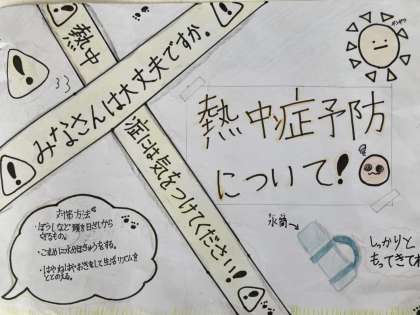 熱中
症には気をつけてください!
みなさんは大丈夫ですか。
熱中症予防
について!
対策方法
・ぼうしなどで頭を日ざしから
守るもの。
・こまめに水分ほきゅうをする。
・はやねはやおきをして生活リズムを
ととのえる。
水筒
しっかりと
もってきてね